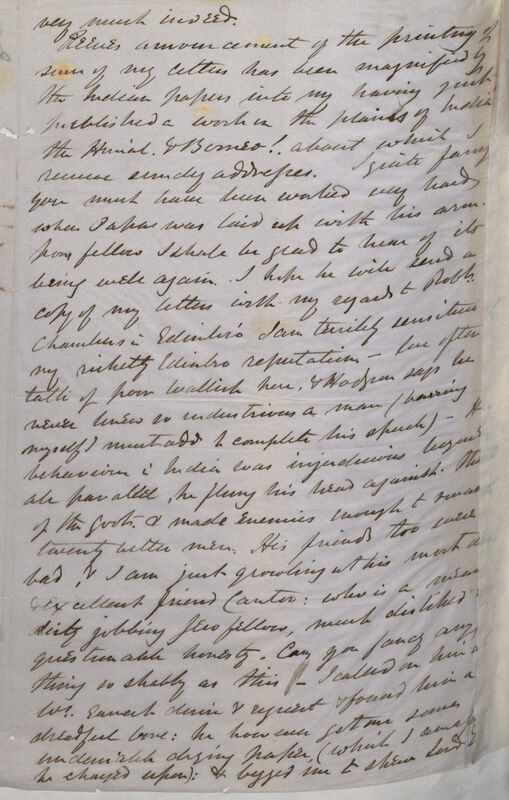 very much indeed.
Reeves announcement of the printing of
some of my letters has been magnified by
the Indian papers into my having just
published a work on the plains of India
the Himal. & Borneo!. about which I
receive sundry addresses. I quite fancy
you must have been worked very hard
when Papa was laid up with his arm.
poor fellow I shall be glad to hear of its
being well again. I hope he will send a
copy of my letters with my regards to Robt.
Chambers in Edinbro' I am terribly sensitive
my ricketty Edinbro reputation – we often
talk of poor Wallich here, & Hodgson says he
never knew so industrious a man (barring
myself I must add to complete his speech) – His
behaviour in India was injudicious beyond
all parallel, he flung his head against the
of the Govt. & made enemies enough to
twenty better men. His friends too were
bad, & I am just growling at his most
excellent friend Cantor: who is a mean
dirty jobbing Jew fellow, much disliked &
questionable honesty. Can you fancy any
thing so shabby as this – I called on him
Ws. earnest desire & request & found him a
dreadful bore: he however got me some
undeniable drying paper, (which I am
he charged upon): & begged me to shew Lord